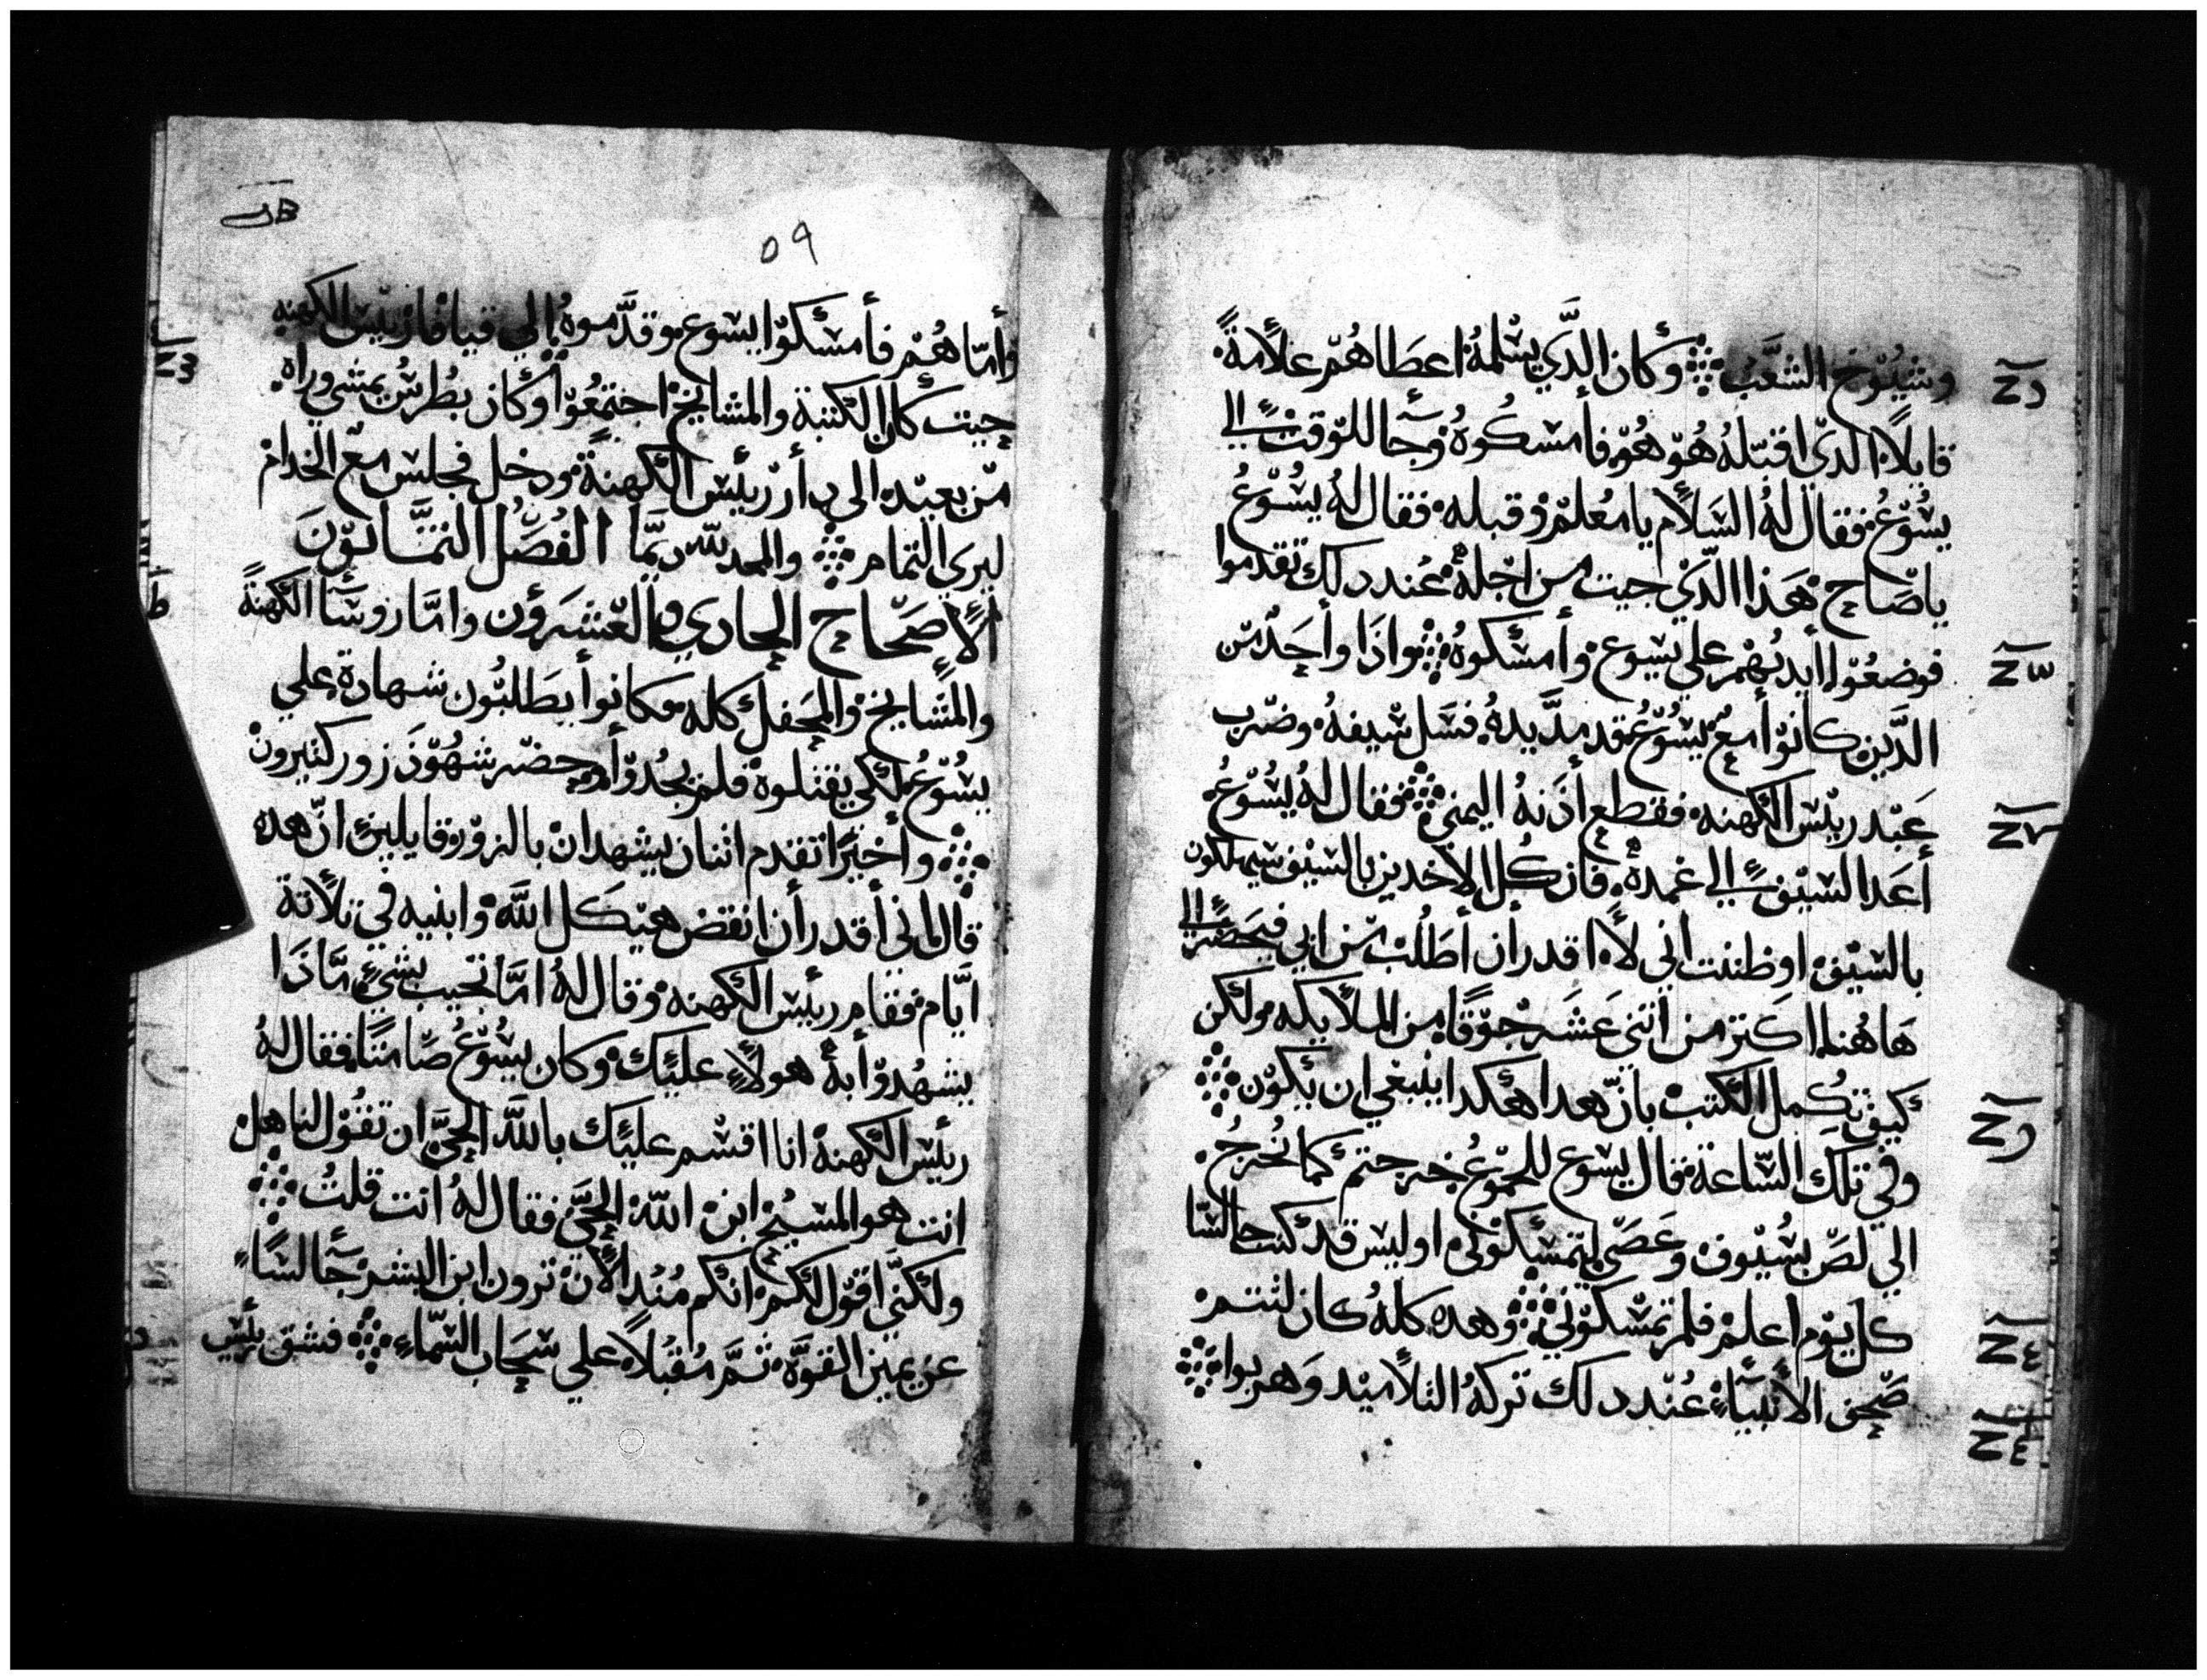 وشيُوْخ الشعَّب ܀ وكان الدَّي يسْلمهُ اعطاهُمْ علاَمةً
قايلاً الدي اقبّلهُ هُوّ هُوّ فأمسكُوهُ وجآ للوّقت الي
يسُوّعُ فقال لهُ السَلاَم يا معُلمّ وقبله فقال لهُ يسُوّعُ
ياصَاح هَدا الدّي جيت من اجلهُ عند دلك تقدموا
فوضعُوّا أيديهُمْ علي يسوع وأمسكوهُ ܀ واذا وأحدٌ من
الدّين كانوّا معٌ يسُوّعُ قد مدَّ يدهُ فسَل سْيفهُ وضرب
عَبْد ريّس الكهنه فقطع أدنهُ اليمني ܀ فقال لهُ يسُوّعُ
أعَد السّيف الي غمدهُ فان كُل الاخدين بالسّيف سيهلكون
بالسّيف اوظننت أني لاَ اقدر أن أطلُب من ابي فيحضر الي
هَا هُنا اكتر من أتني عَشَر جوّقًا من الملاَيكه ولكن
كيف تكمل الكتب بانّ هدا هكدا ينبغي ان يكوّن ܀
وفي تلك السّاعة قال يسوع للجموّعُ خرجتم كما نُخرجُ
الي لصّ بسُيوف وعَصيّ لتمسكوني اوليس قد كنت جالسًا
كل يوّم اعلمْ فلم تمسكوّني ܀ وهده كلهُ كان لتتمْ
صّحف الأنبيَآءِ عُنْد دلك تركهُ التلاَميد وَهربوا ܀
د
ـس
ـر
ـو
ـع
٥٩
وأمّا هُمْ فأمسكوّا يسوع وقدَّموهُ الي قيافا ريّس الكهنه
حيت كان الكتبة والمشايخ اجتمعُوّا وكان بطُرسُ يمشي وراه
منْ بعيْد الي دار ريّس الكهنة ودخل فجلس معّ الخدام
ليري التمام ܀ والمجد لله دايمًا الفُصَلُ التمَّانوّنَ
الاَصَحّاح الحادي والعّشرَوُن وامَّا روسَآ الكهنةً
والمَشايخ والمحفل كله وكانوا يطلبُون شهادة علي
يسُوّعُ لكي يقتلوهُ فلم يجُدوّا وحضر شهُوّدَ زور كتيرون
܀ وأخيرًا تقدم اتنان يشهدان بالزوّر قايلين انّ هده
قال اني أقدر أن انقض هيكل اللَه وابنيه في تلاَتة
ايَّام فقام ريّس الكهنه وقال لهُ امَّا تجيب بشيءٍ مّادَا
يشهدوّا بهُ هولاَءِ عليْك وكان يسُوّعُ صَامتًا فقال لهُ
ريّس الكهنهْ انا اقسْم عليْك باللَّه الحيَّ ان تقوُل لنا هل
انت هو المسيح ابن اللّه الحيَّ فقال لهُ انت قلتُ ܀
ولكنّي اقوّل لكم انكم مُنُد الاَن ترون ابن البشر جآلسًا
عن يمين القوَّه تمَّ مُقبُلاً علي سَحَاب السّماءِ ܀ فشق ريّس